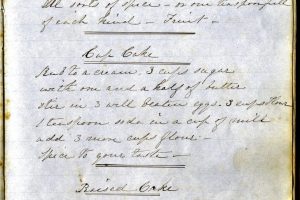 All sorts of spice - or one teaspoonfull
of each kind - Fruit -
Cup Cake
Rub to a cream 3 cups sugar
with one and a half of butter
stir in 3 well beaten eggs. 3 cups flour
1 teaspoon soda in a cup of milk
add 3 more cups flour -
Spice to your taste -
Raised Cake